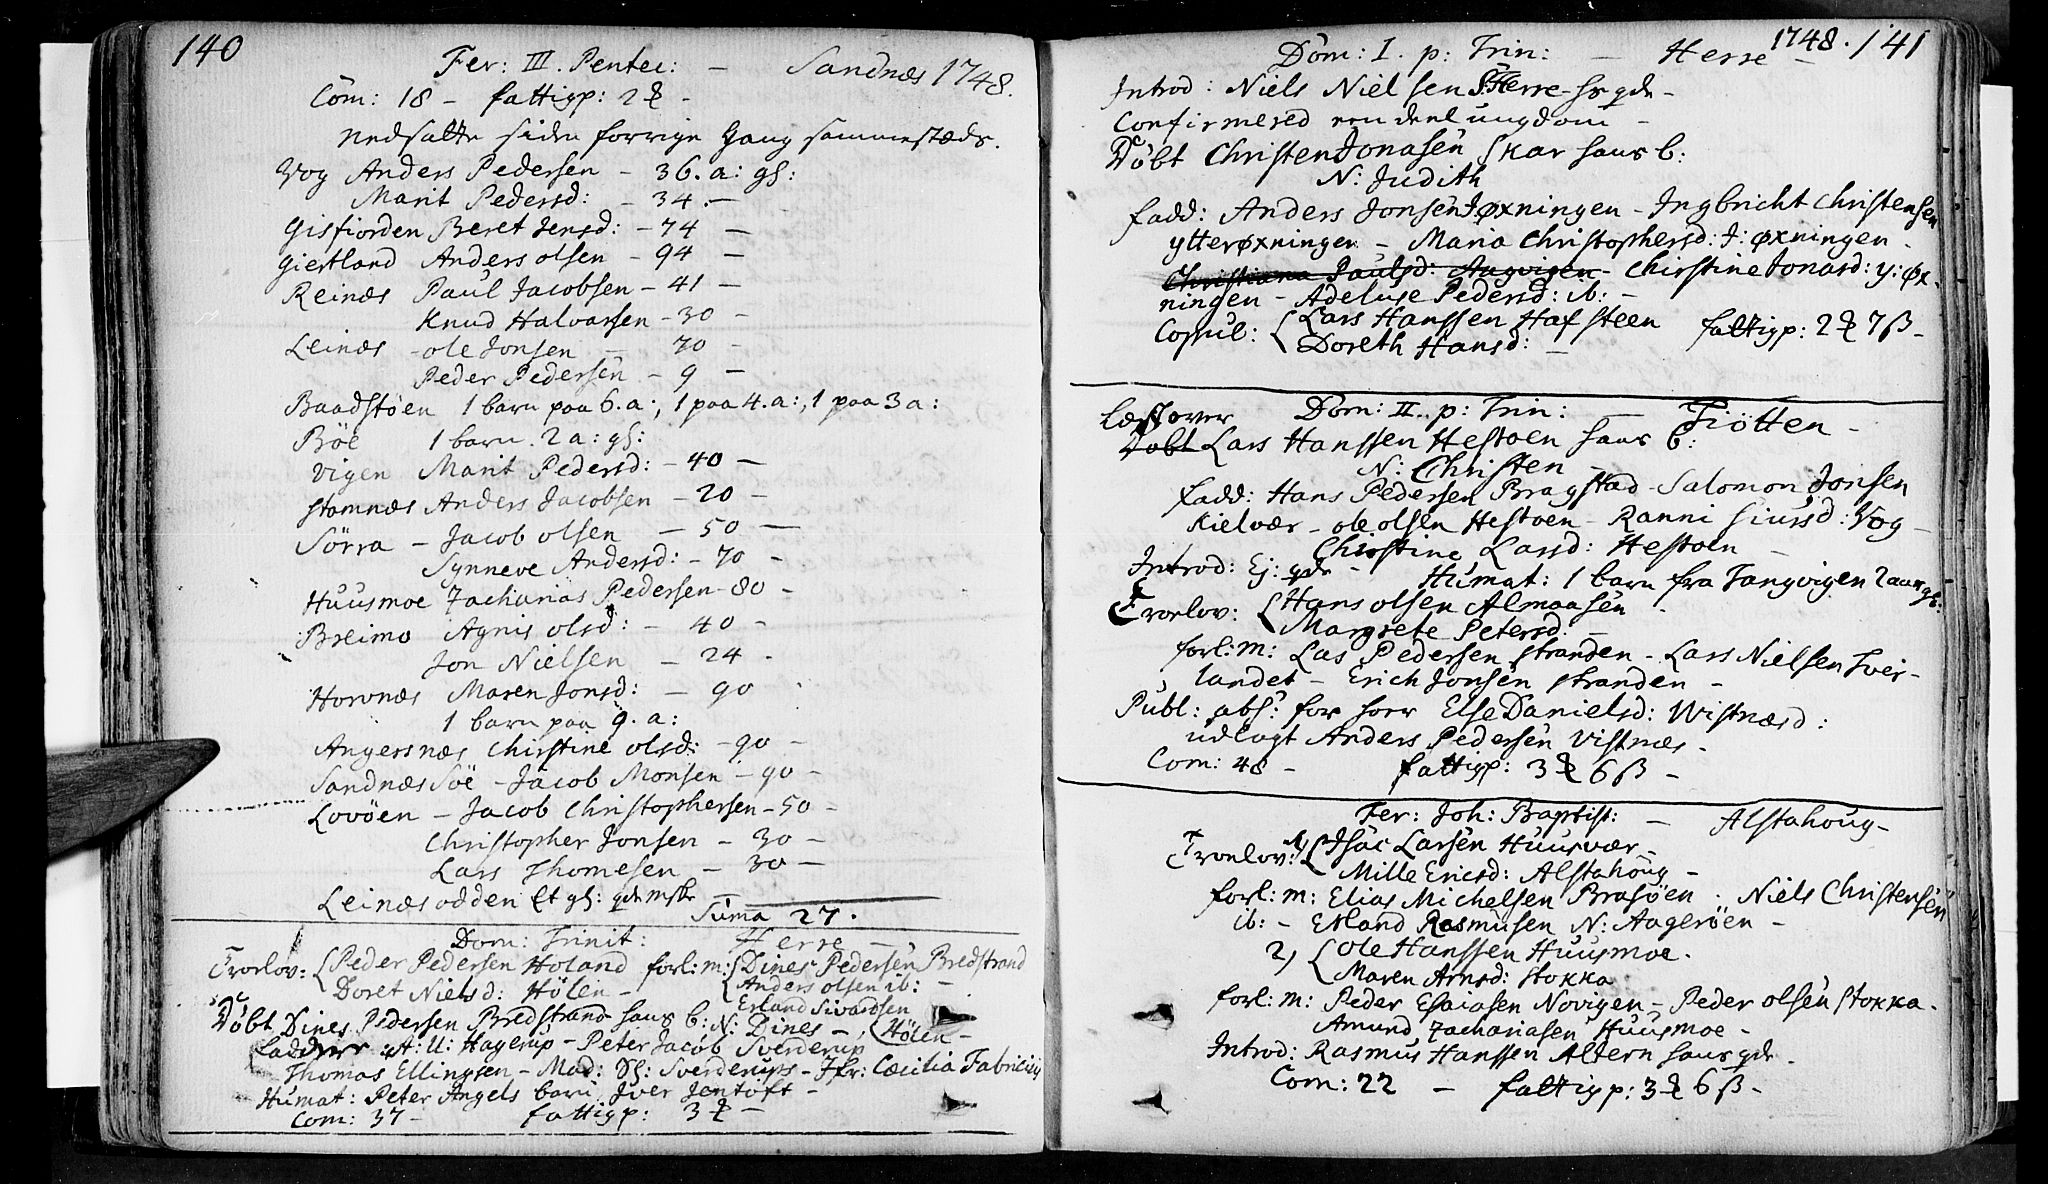 140
Fer: III. Pentec: - Sandnæs 1748.
Com: 18 - fattigp: 2 -
Nedsatte siden forrige Gang sammestæds.
Vog Anders Pedersen - 36. a: gl:
Marit Pedersd: - 34. -
Gisfiorden Beret Jensd: - 74 -
Giertland Anders olsen - 94 -
Reinæs Paul Jacobsen - 41 -
Knud Halvarsen - 30 -
Leinæs - ole Jonsen - 70 -
Peder Pedersen - 9 -
Baadstöen 1 barn paa 6. a:, 1 paa 4. a:, 1 paa 3 a:
Böe 1 barn. 2 a: gl:
Vigen Marit Pedersd: - 40 -
Stamnæs Anders Jacobsen - 20 -
Sörra - Jacob olsen - 50 -
Synneve Andersd: - 70 -
Huusmoe Zacharias Pedersen - 80 -
Breimo Agnis olsd: - 40 -
Jon Nielsen - 24 -
Horvnæs Maren Jonsd: - 90
1 barn paa 9. a:
Angersnæs Christine olsd: - 90 -
Sandnæs Söe - Jacob Monsen - 90 -
Lovöen - Jacob Christophersen - 50 -
Christopher Jonsen - 30 -
Lars Thomesen - 30 -
Leinæsodden Et gl: qde mske
Suma 27.
Dom: Trinit: Herre -
Troelov: Peder Pedersen Holand forl: m: Dines Pedersen Bredstrand
Doret Nielsd: Hölen - Anders olsen ib: -
Erland Sivardsen
Döbt Dines Pedersen Bredstrand hans b: N: Dines - Hölen -
Fadder: A: U: Hagerup - Peter Jacob Sverderup
Thomas Ellingsen - Mad: Sl: Sverderups - Jfr: Cæcilia Fabricius
Humat: Peter Angels barn Iver Jentoft -
Com: 37 - fattigp: 3 -
1748. 141
Dom: I. p: Trin: - Herre -
Introd: Niels Nielsen S: Herre - hs qde -
Confirmered een deel ungdom -
Döbt Christen Jonasen Skar hans b:
N: Judith
fadd: Anders Jonsen I: øxningen - Ingbricht Christensen
ytterøxningen - Maria Christophersd: I: øxningen -
Christiana Paulsd: Aagvigen - Christine Jonasd: y: øx-
ningen - Adeluse Pedersd: ib: -
Copul: Lars Hanssen Hafsteen fattigp: 2 7 ß -
Doreth Hansd: -
Dom: II. p: Trin: - Tiötten -
Læst over
Döbt Lars Hanssen Hestöen hans b:
N: Christen -
Fadd: Hans Pedersen Bragstad - Salomon Jonsen
Kielvær - ole olsen Hestöen - Ranni Siursd: Vog -
Christine Larsd: Hestöen -
Introd: Ej: qde - Humat: 1 barn fra Tangvigen 2 aar gl:
Troelov: Hans olsen Almaasen -
Margrete Petersd. -
forl: m: Las Pedersen Stranden - Lars Nielsen Tver-
landet - Erich Jonsen Stranden -
Publ: abs: for hoer Else Danielsd: Wistnæsd:
udlagt Anders Pedersen Vistnæs -
Com: 48 - fattigp: 3 6 ß -
Fer: Joh: Baptist: - Alstahoug -
Troelov: 1, Isac Larsen Huusvær -
Mille Ericsd: Alstahoug -
forl: m: Elias Michelsen Brasöen. Niels Christensen
ib: - Erland Rasmusen N: Aagerøen -
2, Ole Hanssen Huusmoe.
Maren Arnsd: Stokka
forl: m: Peder Esaiasen Novigen - Peder olsen Stokka -
Amund Zachariasen Huusmoe -
Introd: Rasmus Hanssen Altern hans qde -
Com: 22 - fattigp: 3 6 ß -